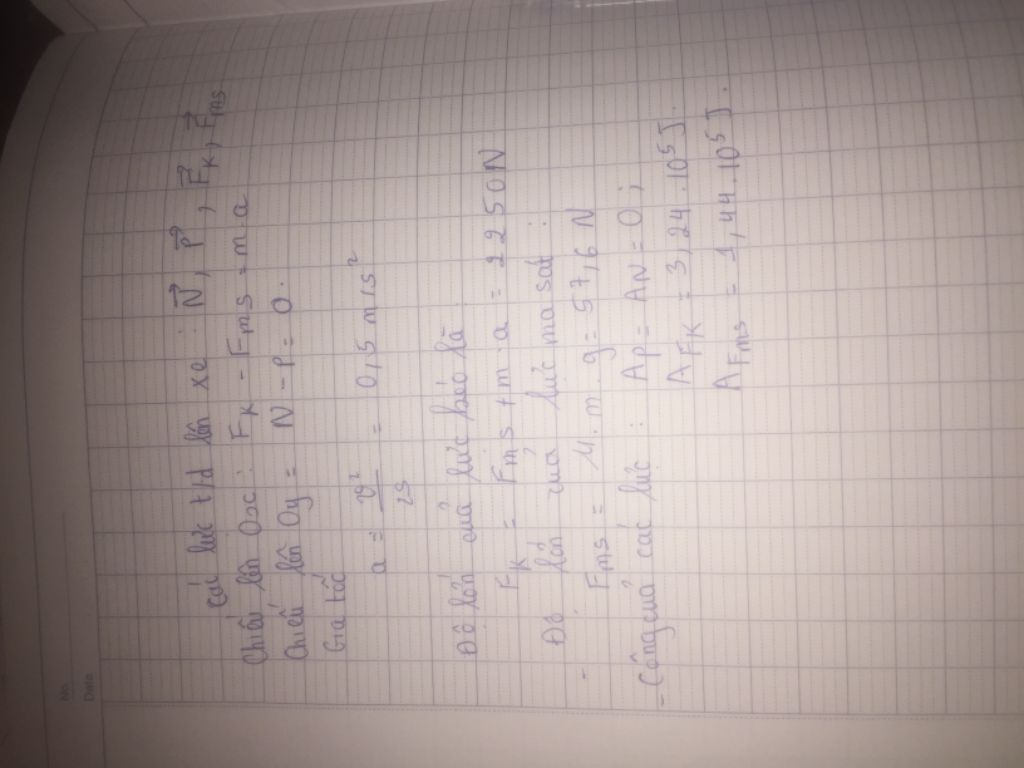 No.
Date
Các lực t/d lên xe : N⃗, P⃗, F⃗k, F⃗ms
Chiếu lên Ox : Fk - Fms = m.a
Chiếu lên Oy = N - P = 0.
Gia tốc
a = v²/2s = 0,5 m/s²
Độ lớn của lực kéo là
Fk = Fms + m.a = 2250N
Độ lớn của lực ma sát :
- Fms = μ.m.g = 57,6 N
- Công của các lực : AP = AN = 0;
AFK = 3,24.10⁵J.
AFms = 1,44.10⁵J.